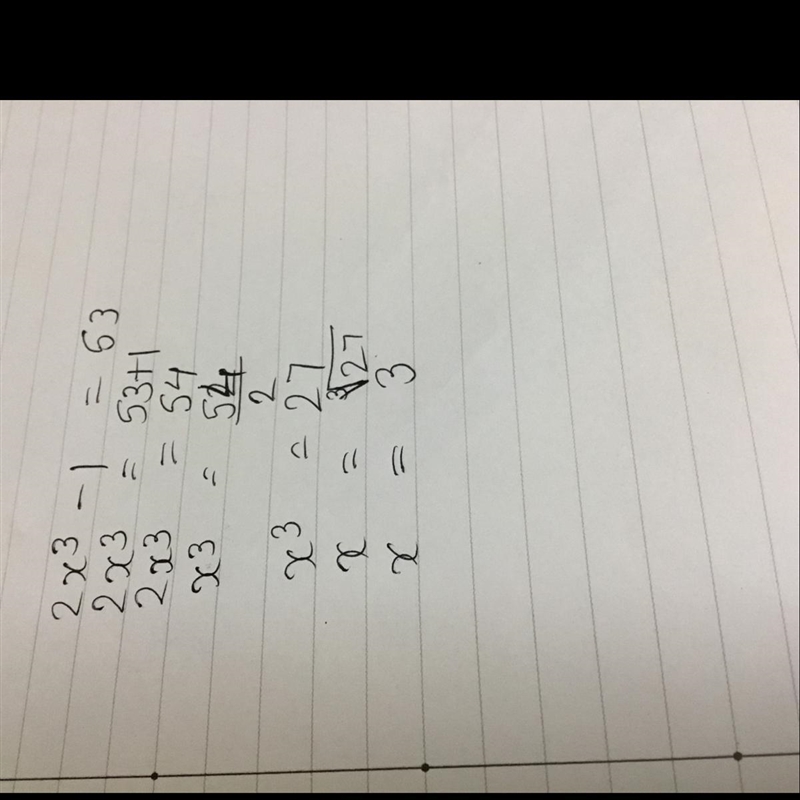 2x³ - 1 = 63
2x³ = 53+1
2x³ = 54
x³ = 54/2
x³ = 27
x = ∛27
x = 3